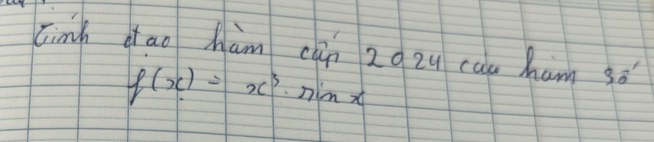 Tính đạo hàm cấp 2024 của hàm số
f(x) = x³. sin x